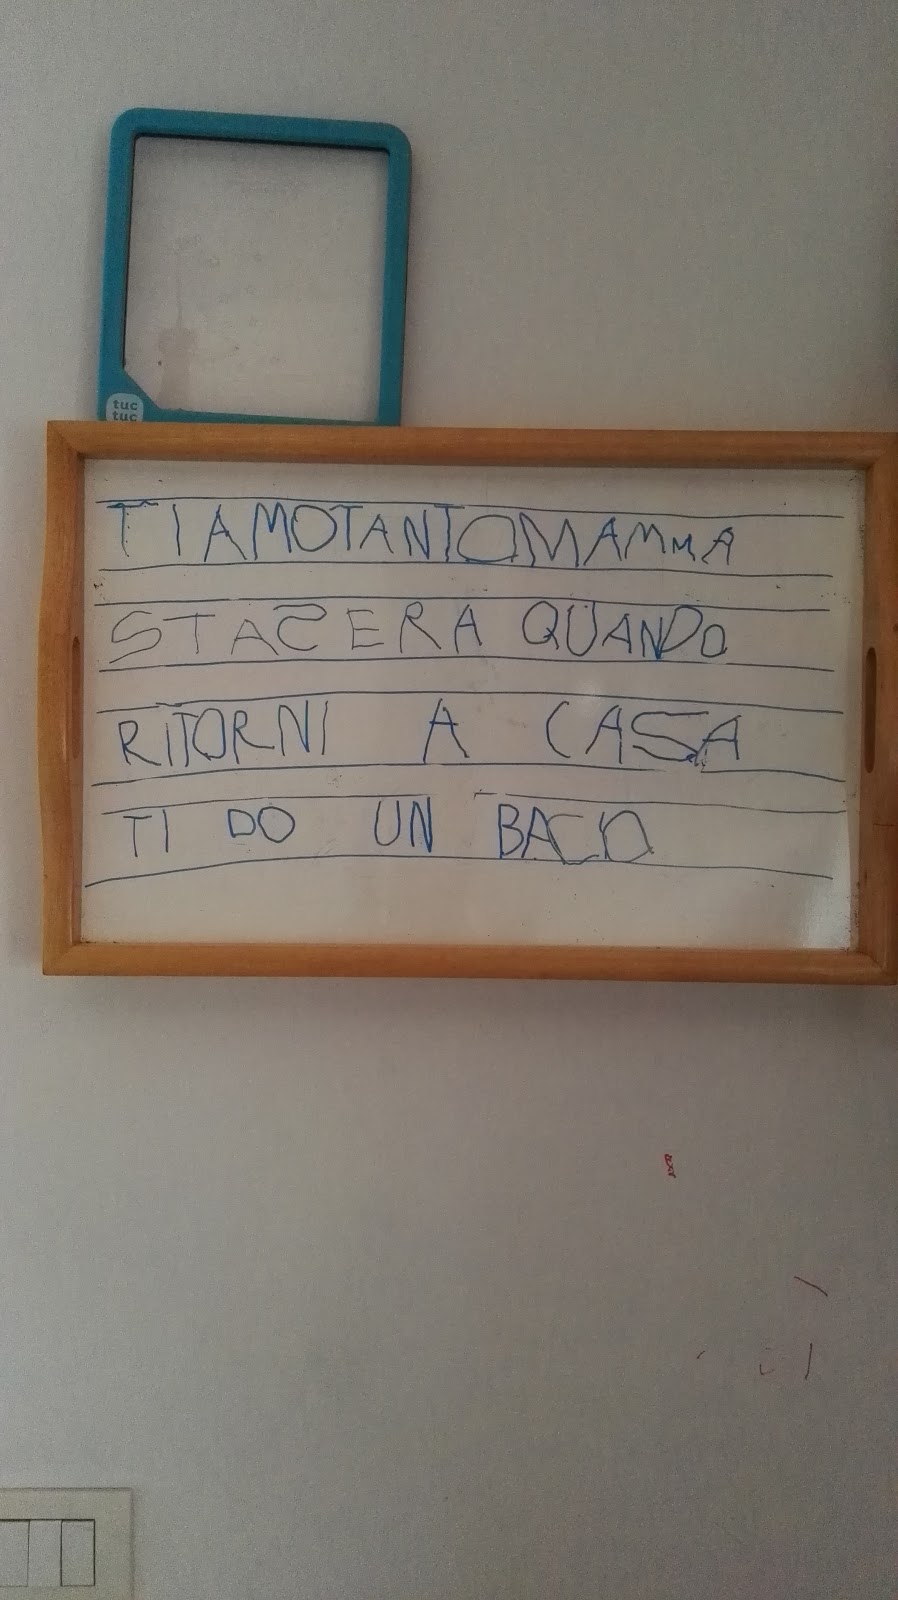 tuc
tuc
TIAMOTANTOMAMMA
STASERA QUANDO
RITORNI A CASA
TI DO UN BACIO